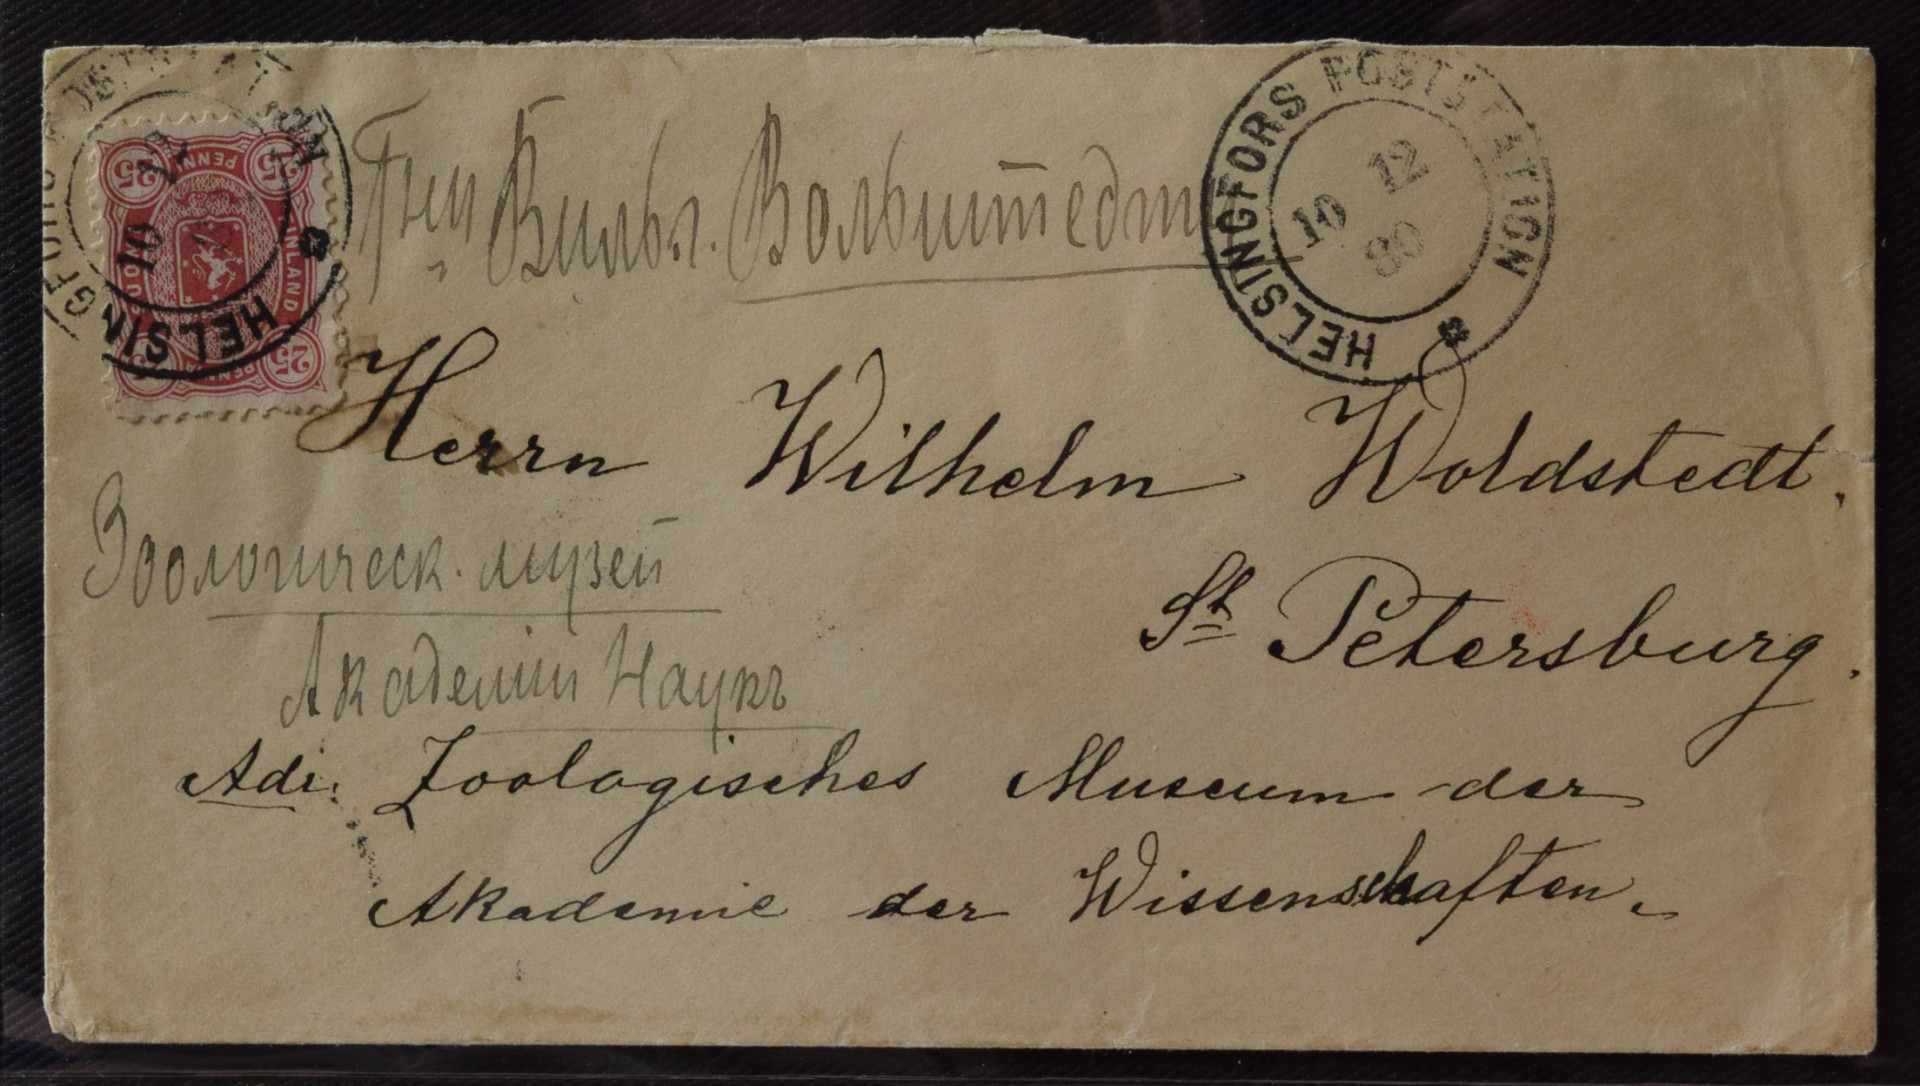 HELSINGFORS POSTSTATION
10 12
25 PENNI 25
25 25
HELSINGFORS POSTSTATION
10 12
80
Вильг. Вольштедт
Herrn Wilhelm Woldstedt.
Зоологическ. музей
St Petersburg.
Академии Наукъ
Adr. Zoologisches Museum der
Akademie der Wissenschaften.